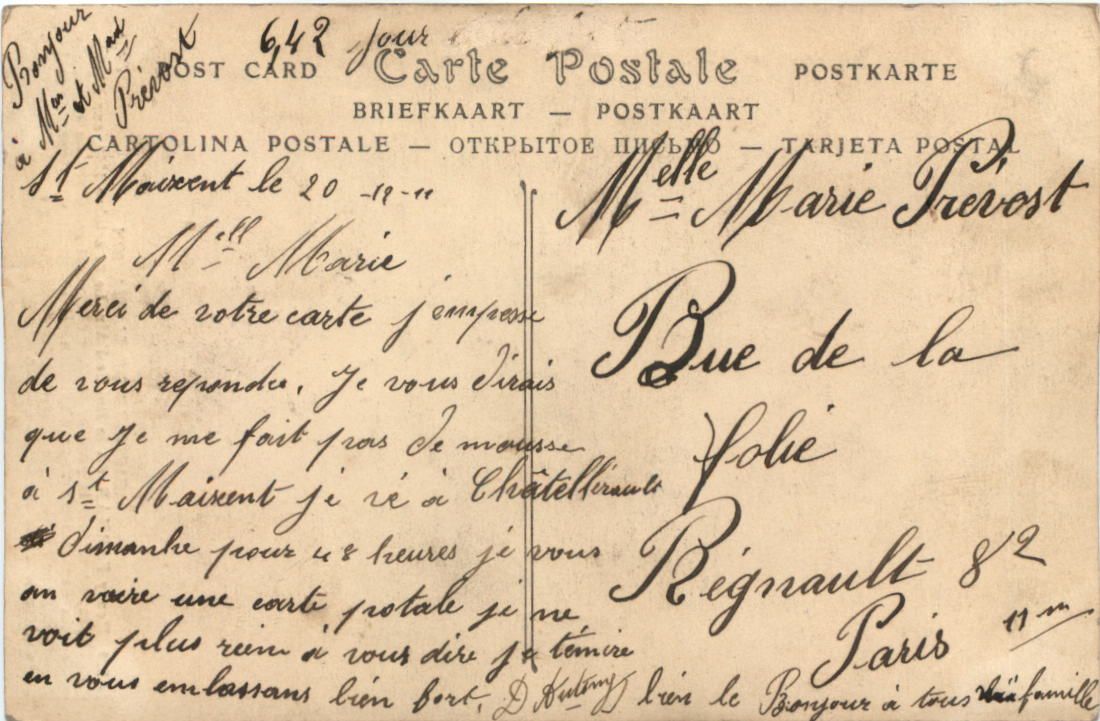 Bonjour
à Mr et Mad
Prévost
642 jour
POST CARD Carte Postale POSTKARTE
BRIEFKAART — POSTKAART
CARTOLINA POSTALE — ОТКРЫТОЕ ПИСЬМО — TARJETA POSTAL
St Maixent le 20 -12-11
Melle Marie
Merci de votre carte j'empresse
de vous repondu. Je vous dirais
que je me fait pas de mousse
à St Maixent je vé à Châtellirault
dimanhe pour 48 heures je vous
an vaire une carte potale je ne
voit plus rein à vous dire je témire
en vous embassans bien fort. D
bien le Bonjour à tous famille
Melle Marie Prévost
Rue de la
folie
Régnault 82
Paris 11m